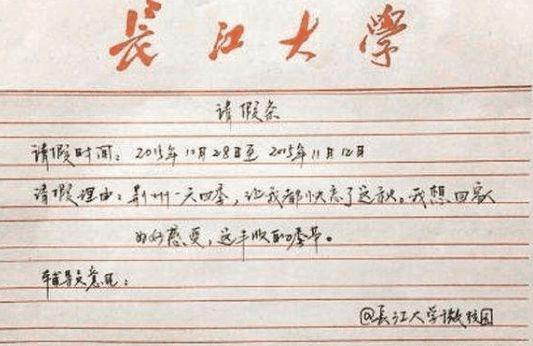 長江大學
请假条
请假时间：2015年10月28日至2015年11月12日
请假理由：荆州一天四季，让我都快忘了这秋。我想回家
好好感受，这丰收的季节。
辅导员意见：
@長江大学微校园